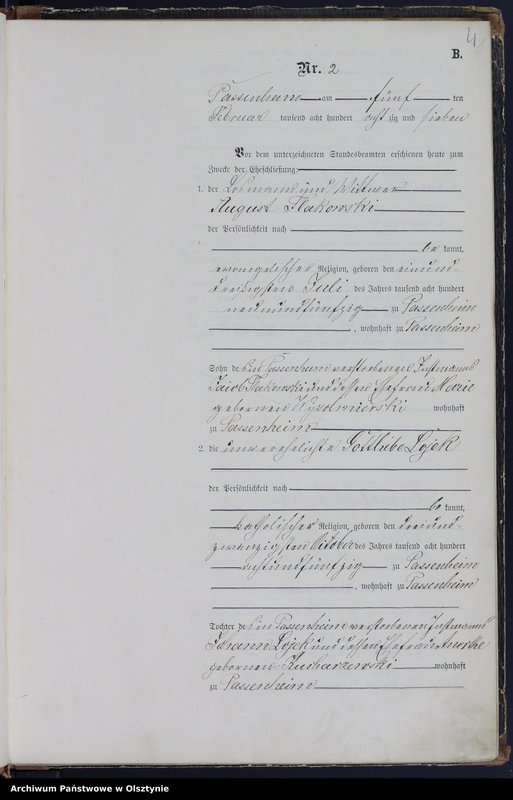 4
B.
Nr. 2
Passenheim am fünf ten
Februar tausend acht hundert acht zig und sieben
Vor dem unterzeichneten Standesbeamten erschienen heute zum
Zwecke der Eheschließung:
1. der Losmann und Wittwer
August Flakowski
der Persönlichkeit nach
be kannt,
evangelischer Religion, geboren den einund-
dreißigsten Juli des Jahres tausend acht hundert
neunundfünfzig zu Passenheim
, wohnhaft zu Passenheim
Sohn des in Passenheim verstorbenen Instmanns
Jacob Flakowski und dessen Ehefrau Marie
gebornen wohnhaft
zu Passenheim
2. die unverehelichte Gottliebe Lojek
der Persönlichkeit nach
be kannt,
katholischer Religion, geboren den dreiund-
zwanzigsten October des Jahres tausend acht hundert
achtundfünfzig zu Passenheim
, wohnhaft zu Passenheim
Tochter des in Passenheim verstorbenen Instmanns
Johann Lojek und dessen Ehefrau
gebornen Kucharzewski wohnhaft
zu Passenheim
Archiwum Państwowe w Olsztynie